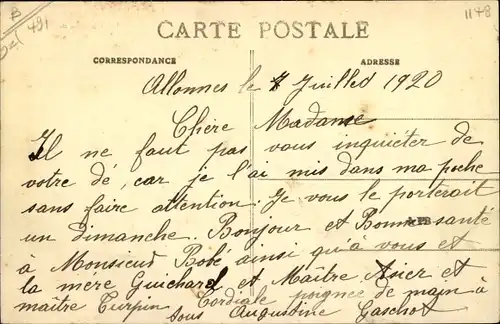 B
491
1148
CARTE POSTALE
CORRESPONDANCE
ADRESSE
Allonnes le 7 Juillet 1920
Chère Madame
Il ne faut pas vous inquiéter de
votre dé, car je l'ai mis dans ma poche
sans faire attention. Je vous le porterait
un dimanche. Bonjour et Bonne santé
à Monsieur Bobé ainsi qu'à vous et
la mere Guichard et Maître Asier et
maître Turpin Cordiale poignee de main à
tous Augustine Gaschot